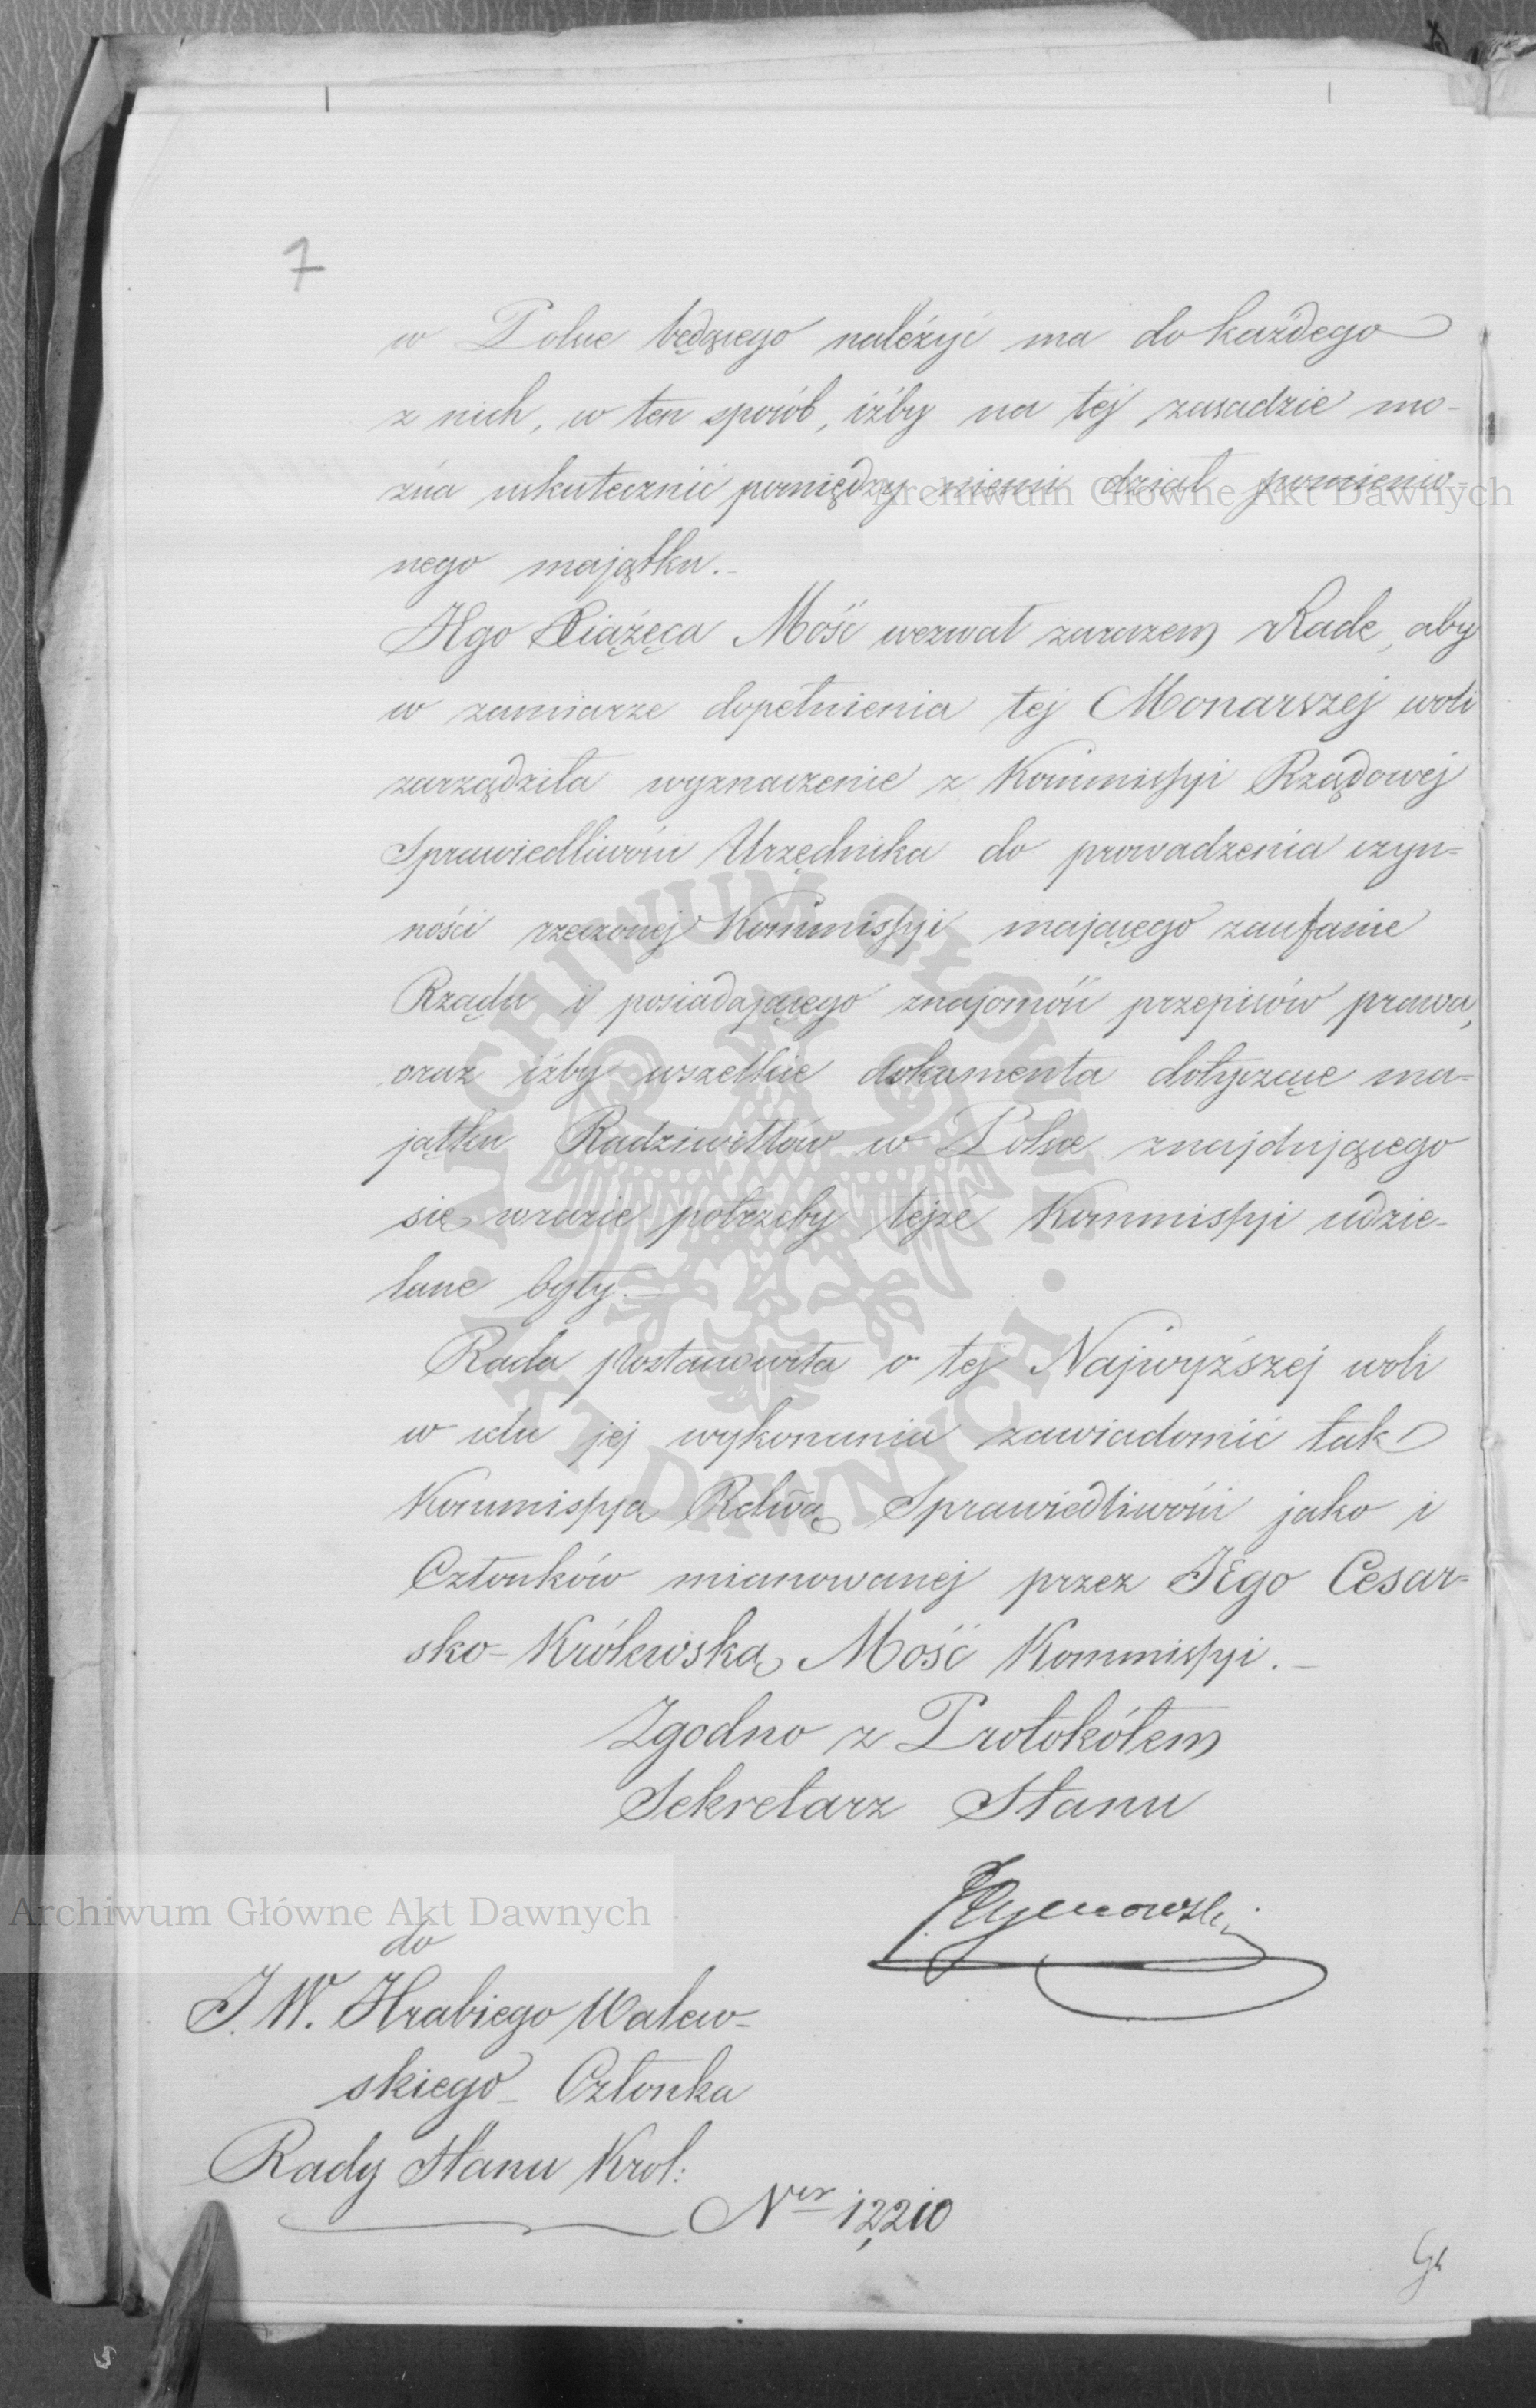 7
w Polsce będącego należyć ma do każdego
z nich, w ten sposób, iżby na tej zasadzie mo-
żna uskutecznić pomiędzy niemi dział pomienio-
nego majątku.-
JEgo Xiążęca Mość wezwał zarazem Radę, aby
w zamiarze dopełnienia tej Monarszej woli
zarządziła wyznaczenie z Kommissyi Rządowej
Sprawiedliwości Urzędnika do prowadzenia czyn=
ności rzeczonej Kommissyi mającego zaufanie
Rządu i posiadającego znajomość przepisów prawa,
oraz iżby wszelkie dokumenta dotyczące ma=
jątku Radziwiłłów w Polsce znajdującego
się w razie potrzeby tejże Kommissyi udzie-
lane były.-
Rada postanowiła o tej Najwyższej woli
w celu jej wykonania zawiadomić tak
Kommissyą Rdwą Sprawiedliwości jako i
Członków mianowanej przez JEgo Cesar=
sko-Królewską Mość Kommissyi.-
Zgodno z Protokółem
Sekretarz Stanu
Tymowski
do
J.W. Hrabiego Walew-
skiego Członka
Rady Stanu Krol:
Ner 12,210
Archiwum Główne Akt Dawnych
Archiwum Główne Akt Dawnych
ARCHIWUM GŁÓWNE
AKT DAWNYCH